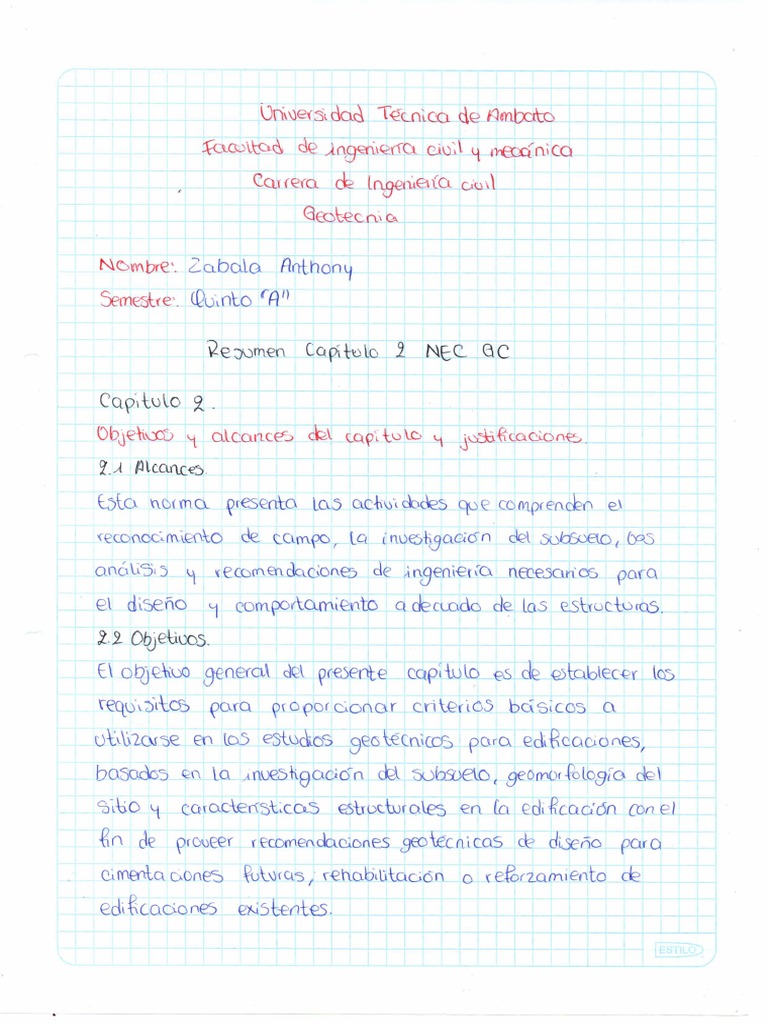 Universidad Técnica de Ambato
Facultad de ingeniería civil y mecánica
Carrera de Ingeniería civil
Geotecnia
Nombre: Zabala Anthony
Semestre: Quinto "A"
Resumen Capítulo 2 NEC GC
Capitulo 2.
Objetivos y alcances del capitulo y justificaciones.
2.1 Alcances.
Esta norma presenta las actividades que comprenden el
reconocimiento de campo, la investigación del subsuelo, los
análisis y recomendaciones de ingeniería necesarios para
el diseño y comportamiento adecuado de las estructuras.
2.2 Objetivos.
El objetivo general del presente capítulo es de establecer los
requisitos para proporcionar criterios básicos a
utilizarse en los estudios geotécnicos para edificaciones,
basados en la investigación del subsuelo, geomorfología del
sitio y características estructurales en la edificación con el
fin de proveer recomendaciones geotécnicas de diseño para
cimentaciones futuras, rehabilitación o reforzamiento de
edificaciones existentes.
ESTILO